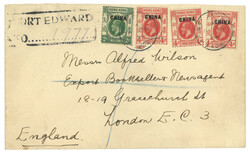 PORT EDWARD
CHINA CHINA CHINA CHINA
Messrs Alfred Wilson
Export Booksellers Newsagent
18-19 Gracechurch St
London E.C.3
England